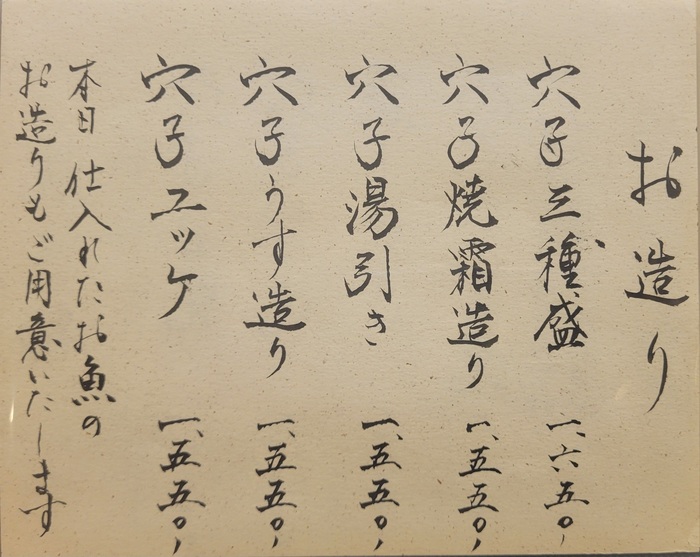 お造り
穴子三種盛 一、六五〇、
穴子焼霜造り 一、五五〇、
穴子湯引き 一、五五〇、
穴子うす造り 一、五五〇、
穴子ユッケ 一、五五〇、
本日仕入れたお魚の
お造りもご用意いたします